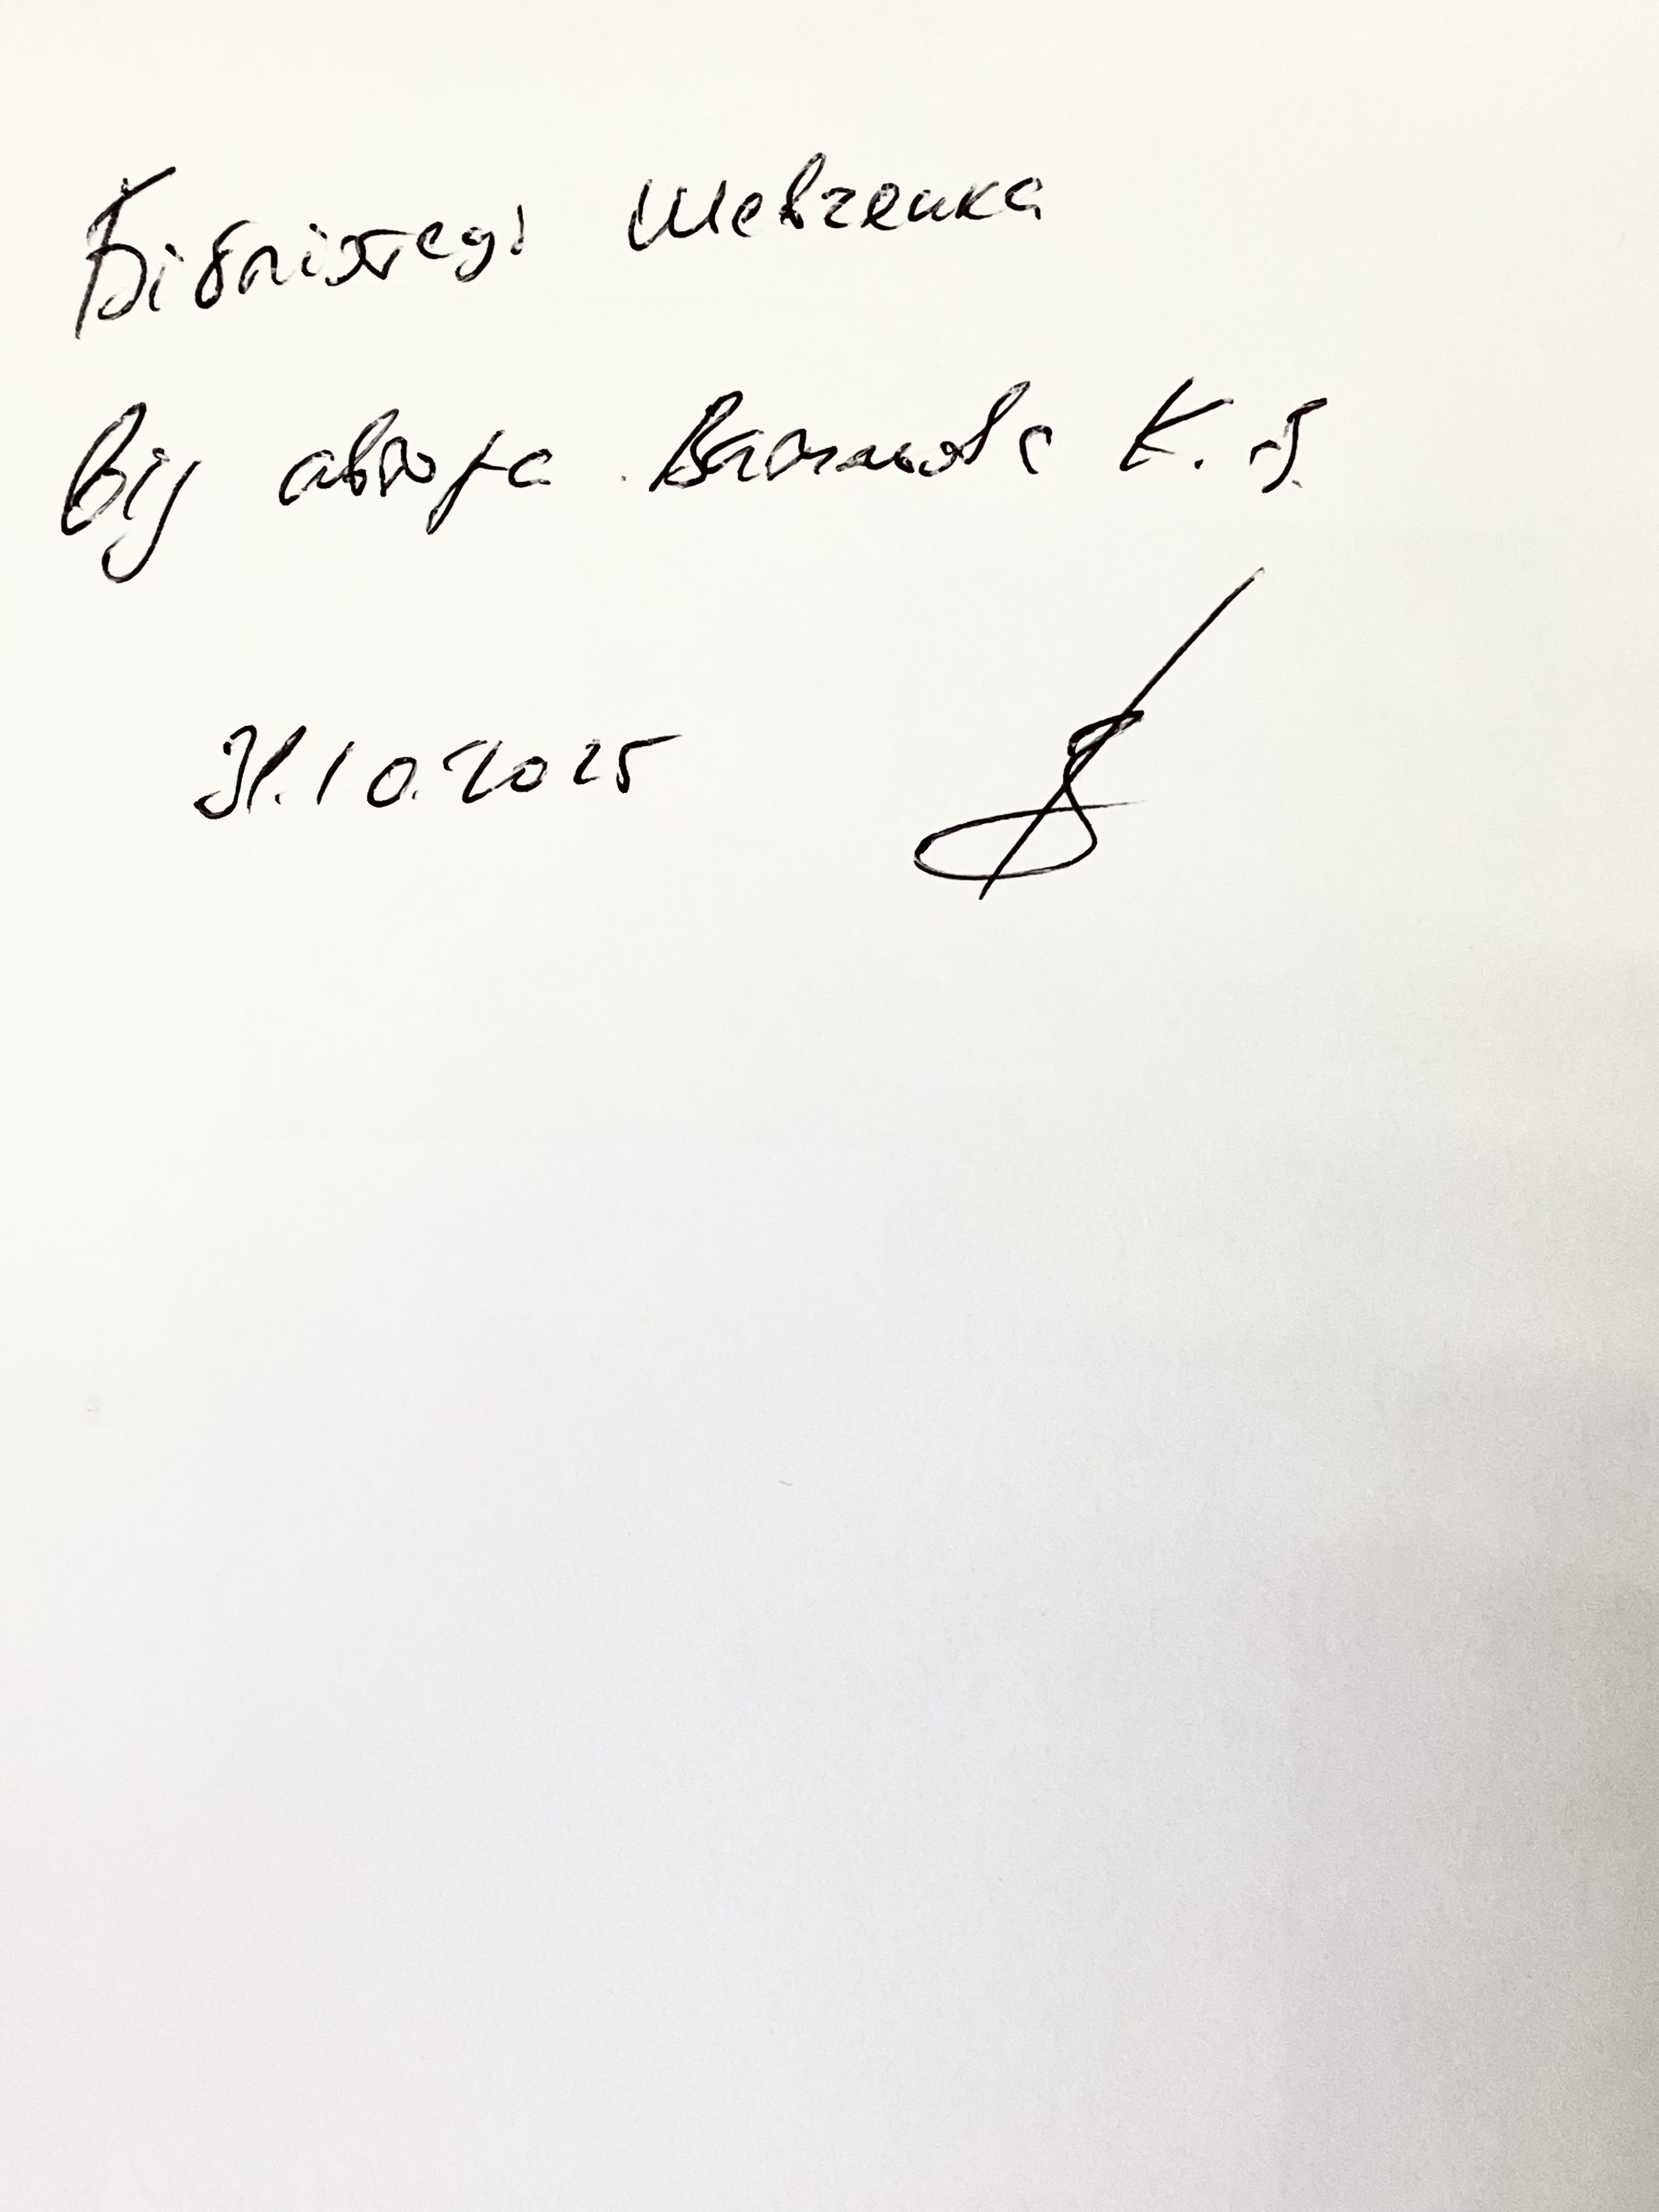 Бібліотеці Шевченка
Від автора К. Я.
31.10.2025